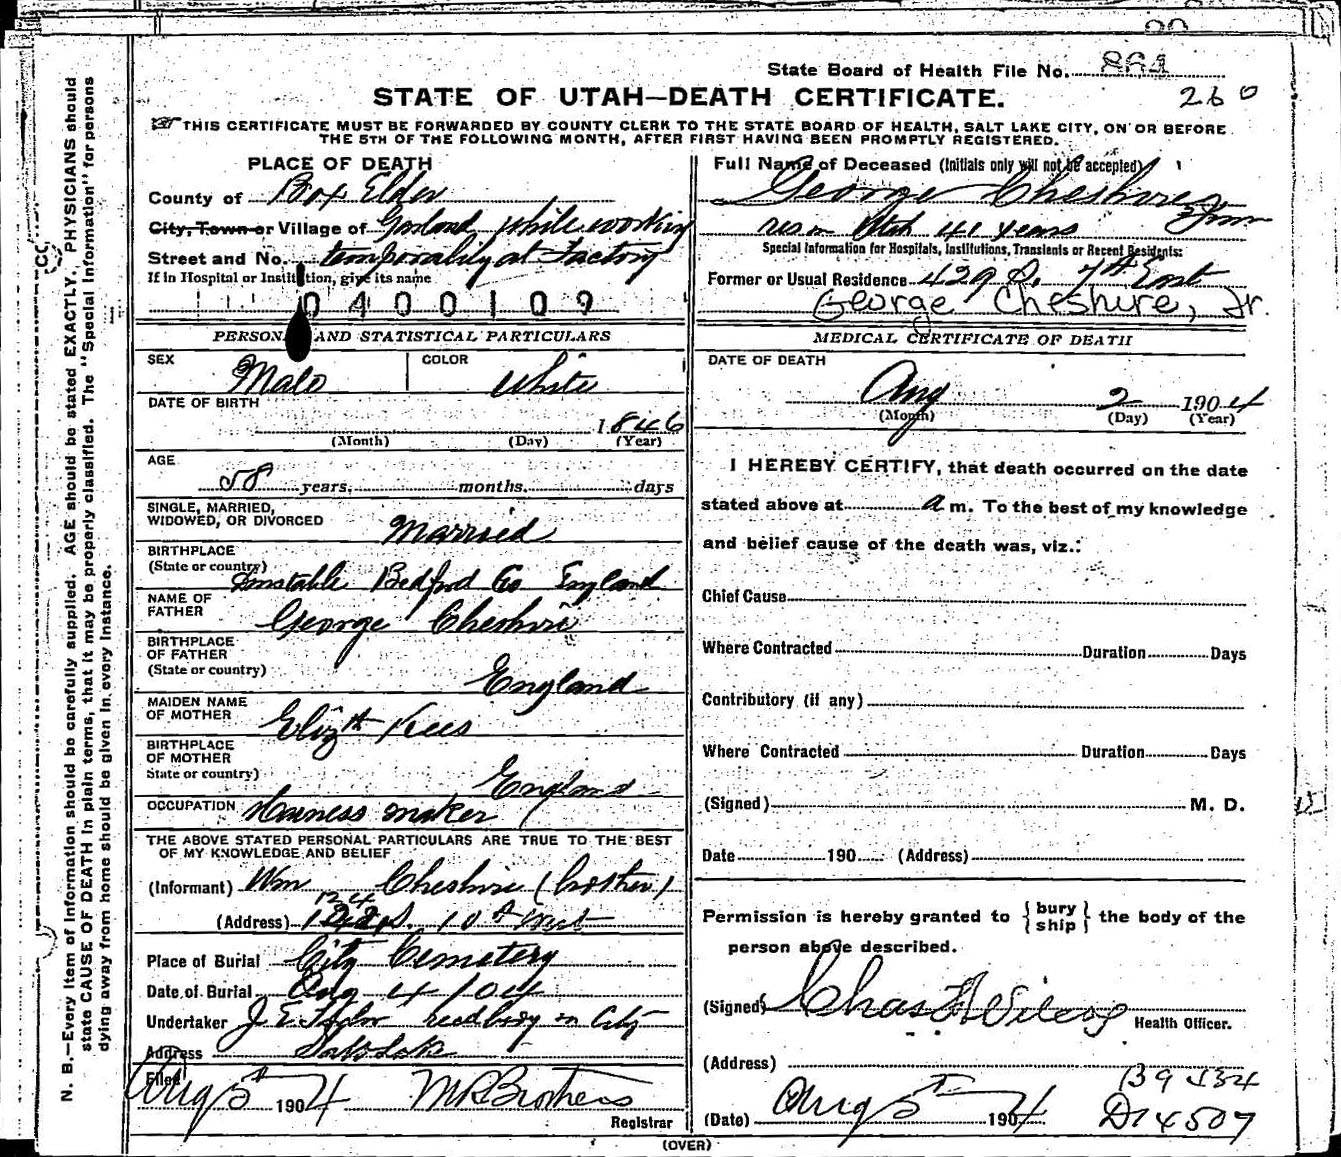 State Board of Health File No. 881
260
STATE OF UTAH—DEATH CERTIFICATE.
THIS CERTIFICATE MUST BE FORWARDED BY COUNTY CLERK TO THE STATE BOARD OF HEALTH, SALT LAKE CITY, ON OR BEFORE
THE 5TH OF THE FOLLOWING MONTH, AFTER FIRST HAVING BEEN PROMPTLY REGISTERED.
PLACE OF DEATH
County of Box Elder
City, Town or Village of Garland while working
Street and No. temporalily at Factory
If in Hospital or Institution, give its name
0400109
PERSONAL AND STATISTICAL PARTICULARS
SEX Male COLOR White
DATE OF BIRTH
1846
(Month) (Day) (Year)
AGE
58 years, months. days
SINGLE, MARRIED,
WIDOWED, OR DIVORCED Married
BIRTHPLACE
(State or country) Dunstable Bedford Co England
NAME OF
FATHER George Cheshire
BIRTHPLACE
OF FATHER
(State or country) England
MAIDEN NAME
OF MOTHER Elizth Kees
BIRTHPLACE
OF MOTHER
State or country) England
OCCUPATION Harness maker
THE ABOVE STATED PERSONAL PARTICULARS ARE TRUE TO THE BEST
OF MY KNOWLEDGE AND BELIEF
(Informant) Wm Cheshire (brother)
124
(Address) S. 10th West
Place of Burial City Cemetery
Date of Burial Aug 4/04
Undertaker J. E. Taylor on City
Address Salt Lake
Filed Aug 5th 1904 M R Brothers
Registrar
Full Name of Deceased (Initials only will not be accepted)
George Cheshire Jun
res in Utah 41 years
Special Information for Hospitals, Institutions, Transients or Recent Residents:
Former or Usual Residence 429 S. 7th East
George Cheshire, Jr.
MEDICAL CERTIFICATE OF DEATH
DATE OF DEATH
Aug 2 1904
(Month) (Day) (Year)
I HEREBY CERTIFY, that death occurred on the date
stated above at a m. To the best of my knowledge
and belief cause of the death was, viz.:
Chief Cause
Where Contracted Duration Days
Contributory (if any)
Where Contracted Duration Days
(Signed) M. D.
Date 190 (Address)
Permission is hereby granted to { bury ship } the body of the
person above described.
(Signed) Chas Wilcox Health Officer.
(Address)
(Date) Aug 5th 1904
B9 J34
D14507
(OVER)
N. B.—Every item of information should be carefully supplied. AGE should be stated EXACTLY. PHYSICIANS should
state CAUSE OF DEATH in plain terms, that it may be properly classified. The "Special Information" for persons
dying away from home should be given in every instance.